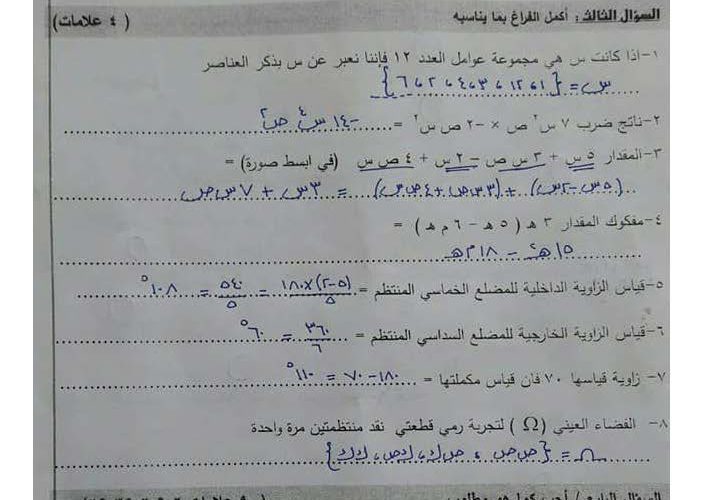 السؤال الثالث: أكمل الفراغ بما يناسبه ( ٤ علامات )
١-اذا كانت س هي مجموعة عوامل العدد ١٢ فإننا نعبر عن س بذكر العناصر
س = { ١ ، ١٢ ، ٣ ، ٤ ، ٢ ، ٦ }
٢-ناتج ضرب ٧ س٢ ص × -٢ ص س٢ = -١٤ س٤ ص٢
٣-المقدار ٥ س + ٣ س ص - ٢ س + ٤ ص س (في ابسط صورة) =
(٥س - ٢س) + (٣س ص + ٤ص س) = ٣س + ٧س ص
٤-مفكوك المقدار ٣ هـ ( ٥ هـ - ٦ م هـ ) =
١٥هـ٢ - ١٨م هـ٢
٥-قياس الزاوية الداخلية للمضلع الخماسي المنتظم = (٥-٢)×١٨٠/٥ = ٥٤٠/٥ = ١٠٨°
٦-قياس الزاوية الخارجية للمضلع السداسي المنتظم = ٣٦٠/٦ = ٦٠°
٧- زاوية قياسها ٧٠ فان قياس مكملتها = ١٨٠-٧٠ = ١١٠°
٨- الفضاء العيني (Ω) لتجربة رمي قطعتي نقد منتظمتين مرة واحدة
Ω = { ص ص ، ص ك ، ك ص ، ك ك }